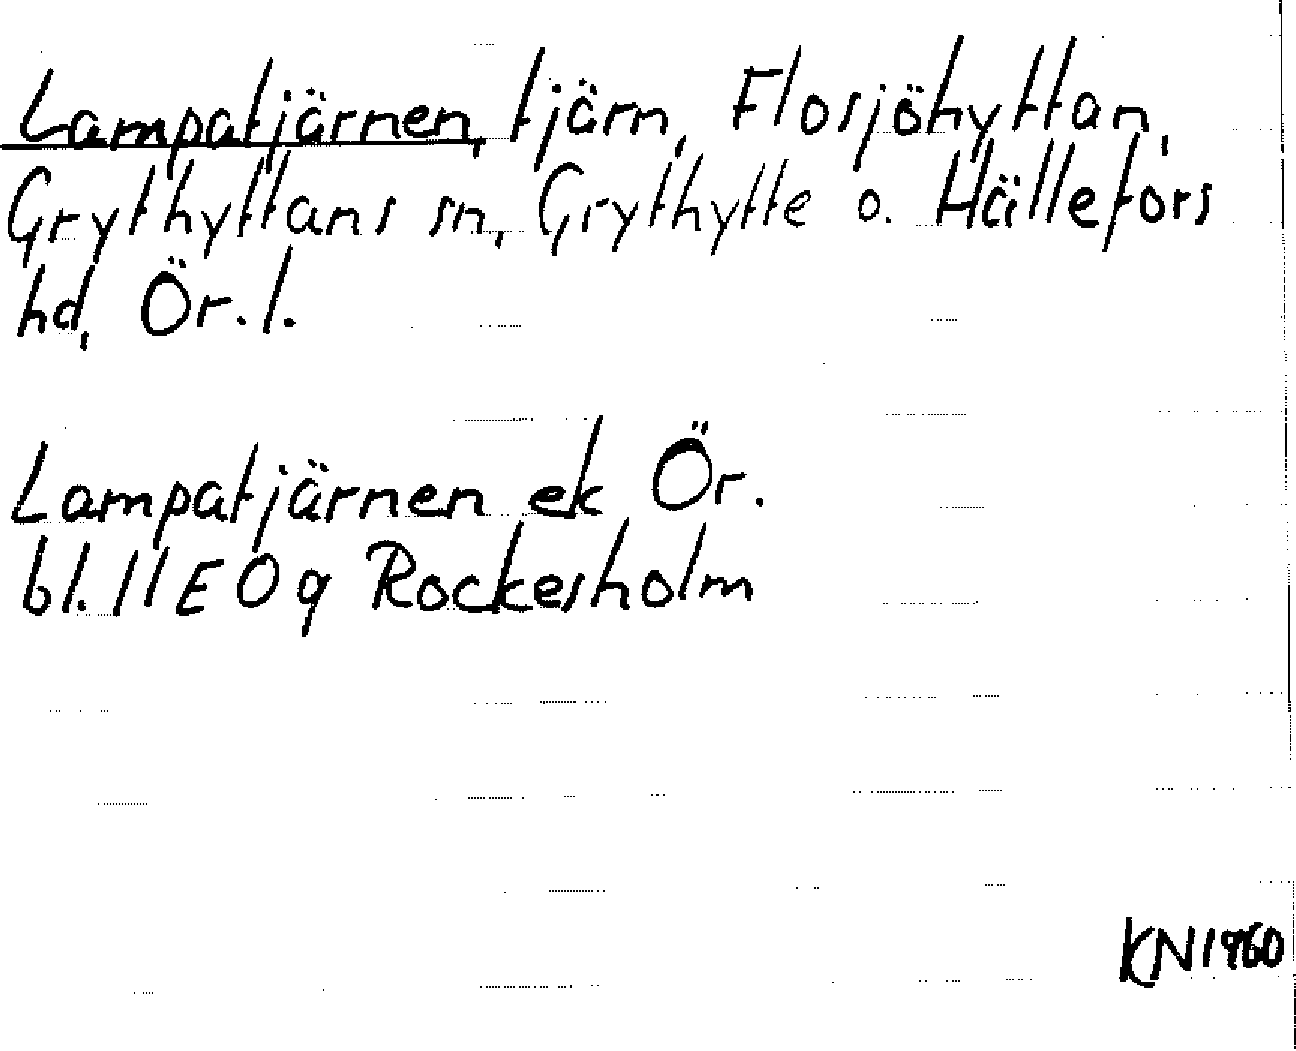 Lampatjärnen, tjärn, Flosjöhyttan,
Grythyttans sn, Grythytte o. Hällefors
hd, Ör. l.
Lampatjärnen ek Ör.
bl. 11E 0g Rockesholm
KN 1960